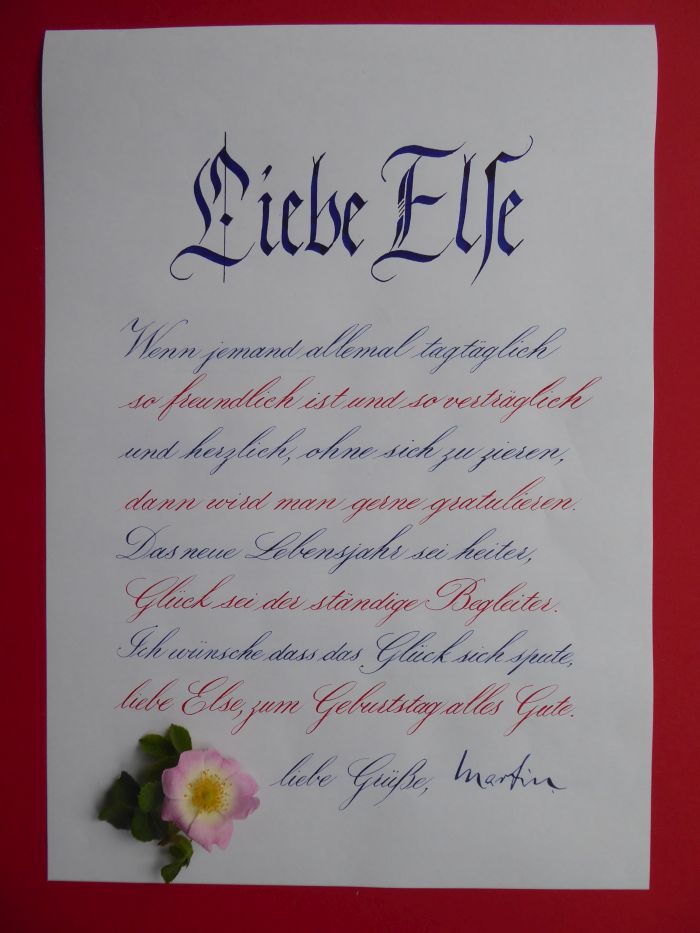 Liebe Else
Wenn jemand allemal tagtäglich
so freundlich ist und so verträglich
und herzlich, ohne sich zu zieren,
dann wird man gerne gratulieren.
Das neue Lebensjahr sei heiter,
Glück sei der ständige Begleiter.
Ich wünsche dass das Glück sich spute,
liebe Else, zum Geburtstag alles Gute.
liebe Grüße, Martin